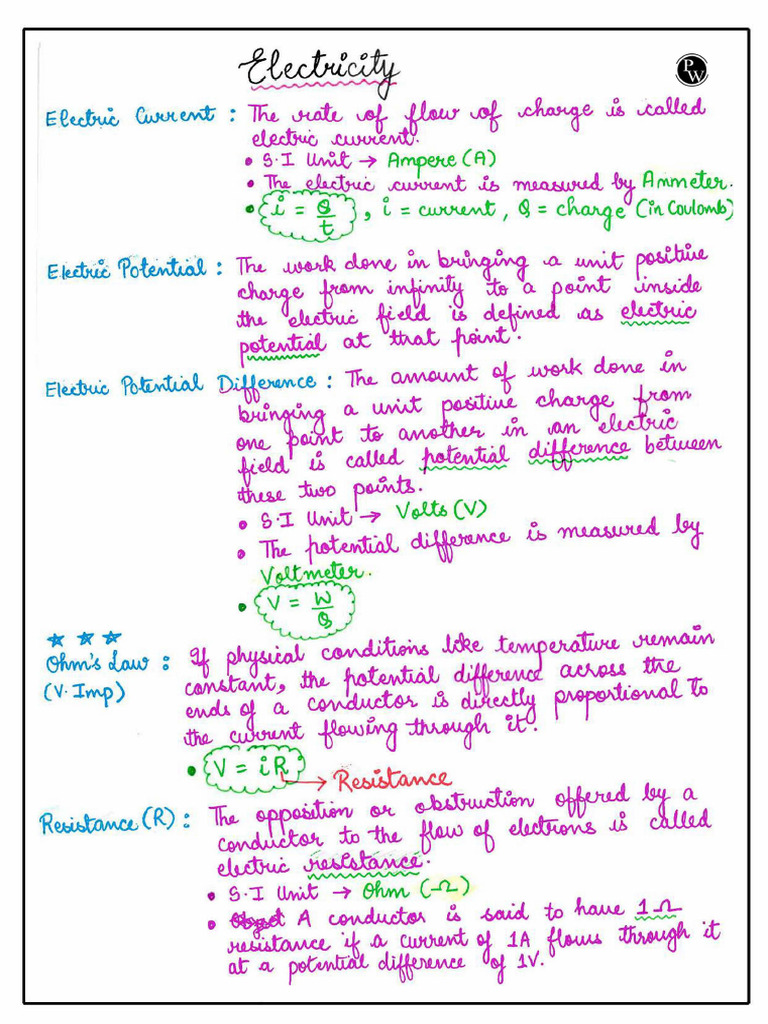 Electricity
PW
Electric Current : The rate of flow of charge is called
electric current.
• S.I Unit → Ampere (A)
• The electric current is measured by Ammeter.
• i = Q/t , i = current, Q = charge (in Coulomb)
Electric Potential : The work done in bringing a unit positive
charge from infinity to a point inside
the electric field is defined as electric
potential at that point.
Electric Potential Difference : The amount of work done in
bringing a unit positive charge from
one point to another in an electric
field is called potential difference between
these two points.
• S.I Unit → Volts (V)
• The potential difference is measured by
Voltmeter.
• V = W/Q
☆ ☆ ☆
Ohm's Law : If physical conditions like temperature remain
(V. Imp) constant, the potential difference across the
ends of a conductor is directly proportional to
the current flowing through it.
• V = iR → Resistance
Resistance (R) : The opposition or obstruction offered by a
conductor to the flow of electrons is called
electric resistance.
• S.I Unit → Ohm (Ω)
• A conductor is said to have 1Ω
resistance if a current of 1A flows through it
at a potential difference of 1V.